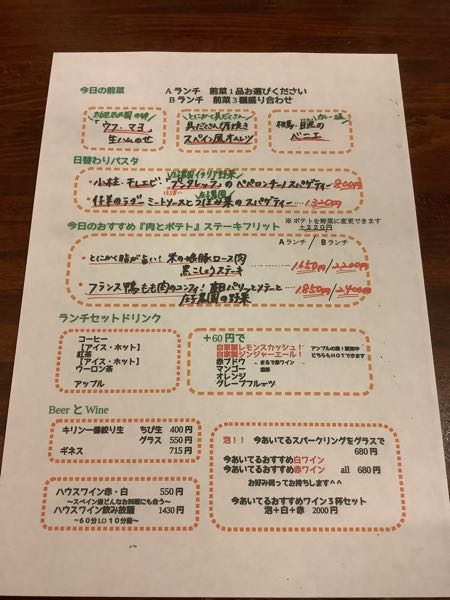 今日の前菜
Aランチ 前菜1品お選びください
Bランチ 前菜3種盛り合わせ
「ウフ・マヨ」
生ハムのせ
とにかく具だくさん
スペイン風オムレツ
カレー塩
日替わりパスタ
のペペロンチーノスパゲティー 800円
ミートソースと のスパゲティー … 1320円
今日のおすすめ『肉とポテト』ステーキフリット
※ポテトを野菜に変更できます
+220円
Aランチ / Bランチ
・とにかく脂が旨い! 米の娘豚ロース肉
黒こしょうステーキ … 1650円/2200円
・フランス鴨もも肉のコンフィ! 皮パリッとソテーと
庄子農園の野菜 … 1850円/2400円
ランチセットドリンク
コーヒー
【アイス・ホット】
紅茶
【アイス・ホット】
ウーロン茶
アップル
+60円で
自家製レモンスカッシュ!
自家製ジンジャーエール!
アンプルの素!販売中
どちらもHOTできます
赤ブドウ まるで赤ワイン
マンゴー 濃厚
オレンジ
グレープフルーツ
Beer と Wine
キリン一番絞り生 ちび生 400円
グラス 550円
ギネス 715円
ハウスワイン赤・白 550円
～スペイン産どんなお料理にも合う～
ハウスワイン飲み放題 1430円
～60分LO10分前～
泡!! 今あいてるスパークリングをグラスで
680円
今あいてるおすすめ白ワイン
今あいてるおすすめ赤ワイン all 680円
お好み伺ってお持ちします^^
今あいてるおすすめワイン3杯セット
泡+白+赤 2000円